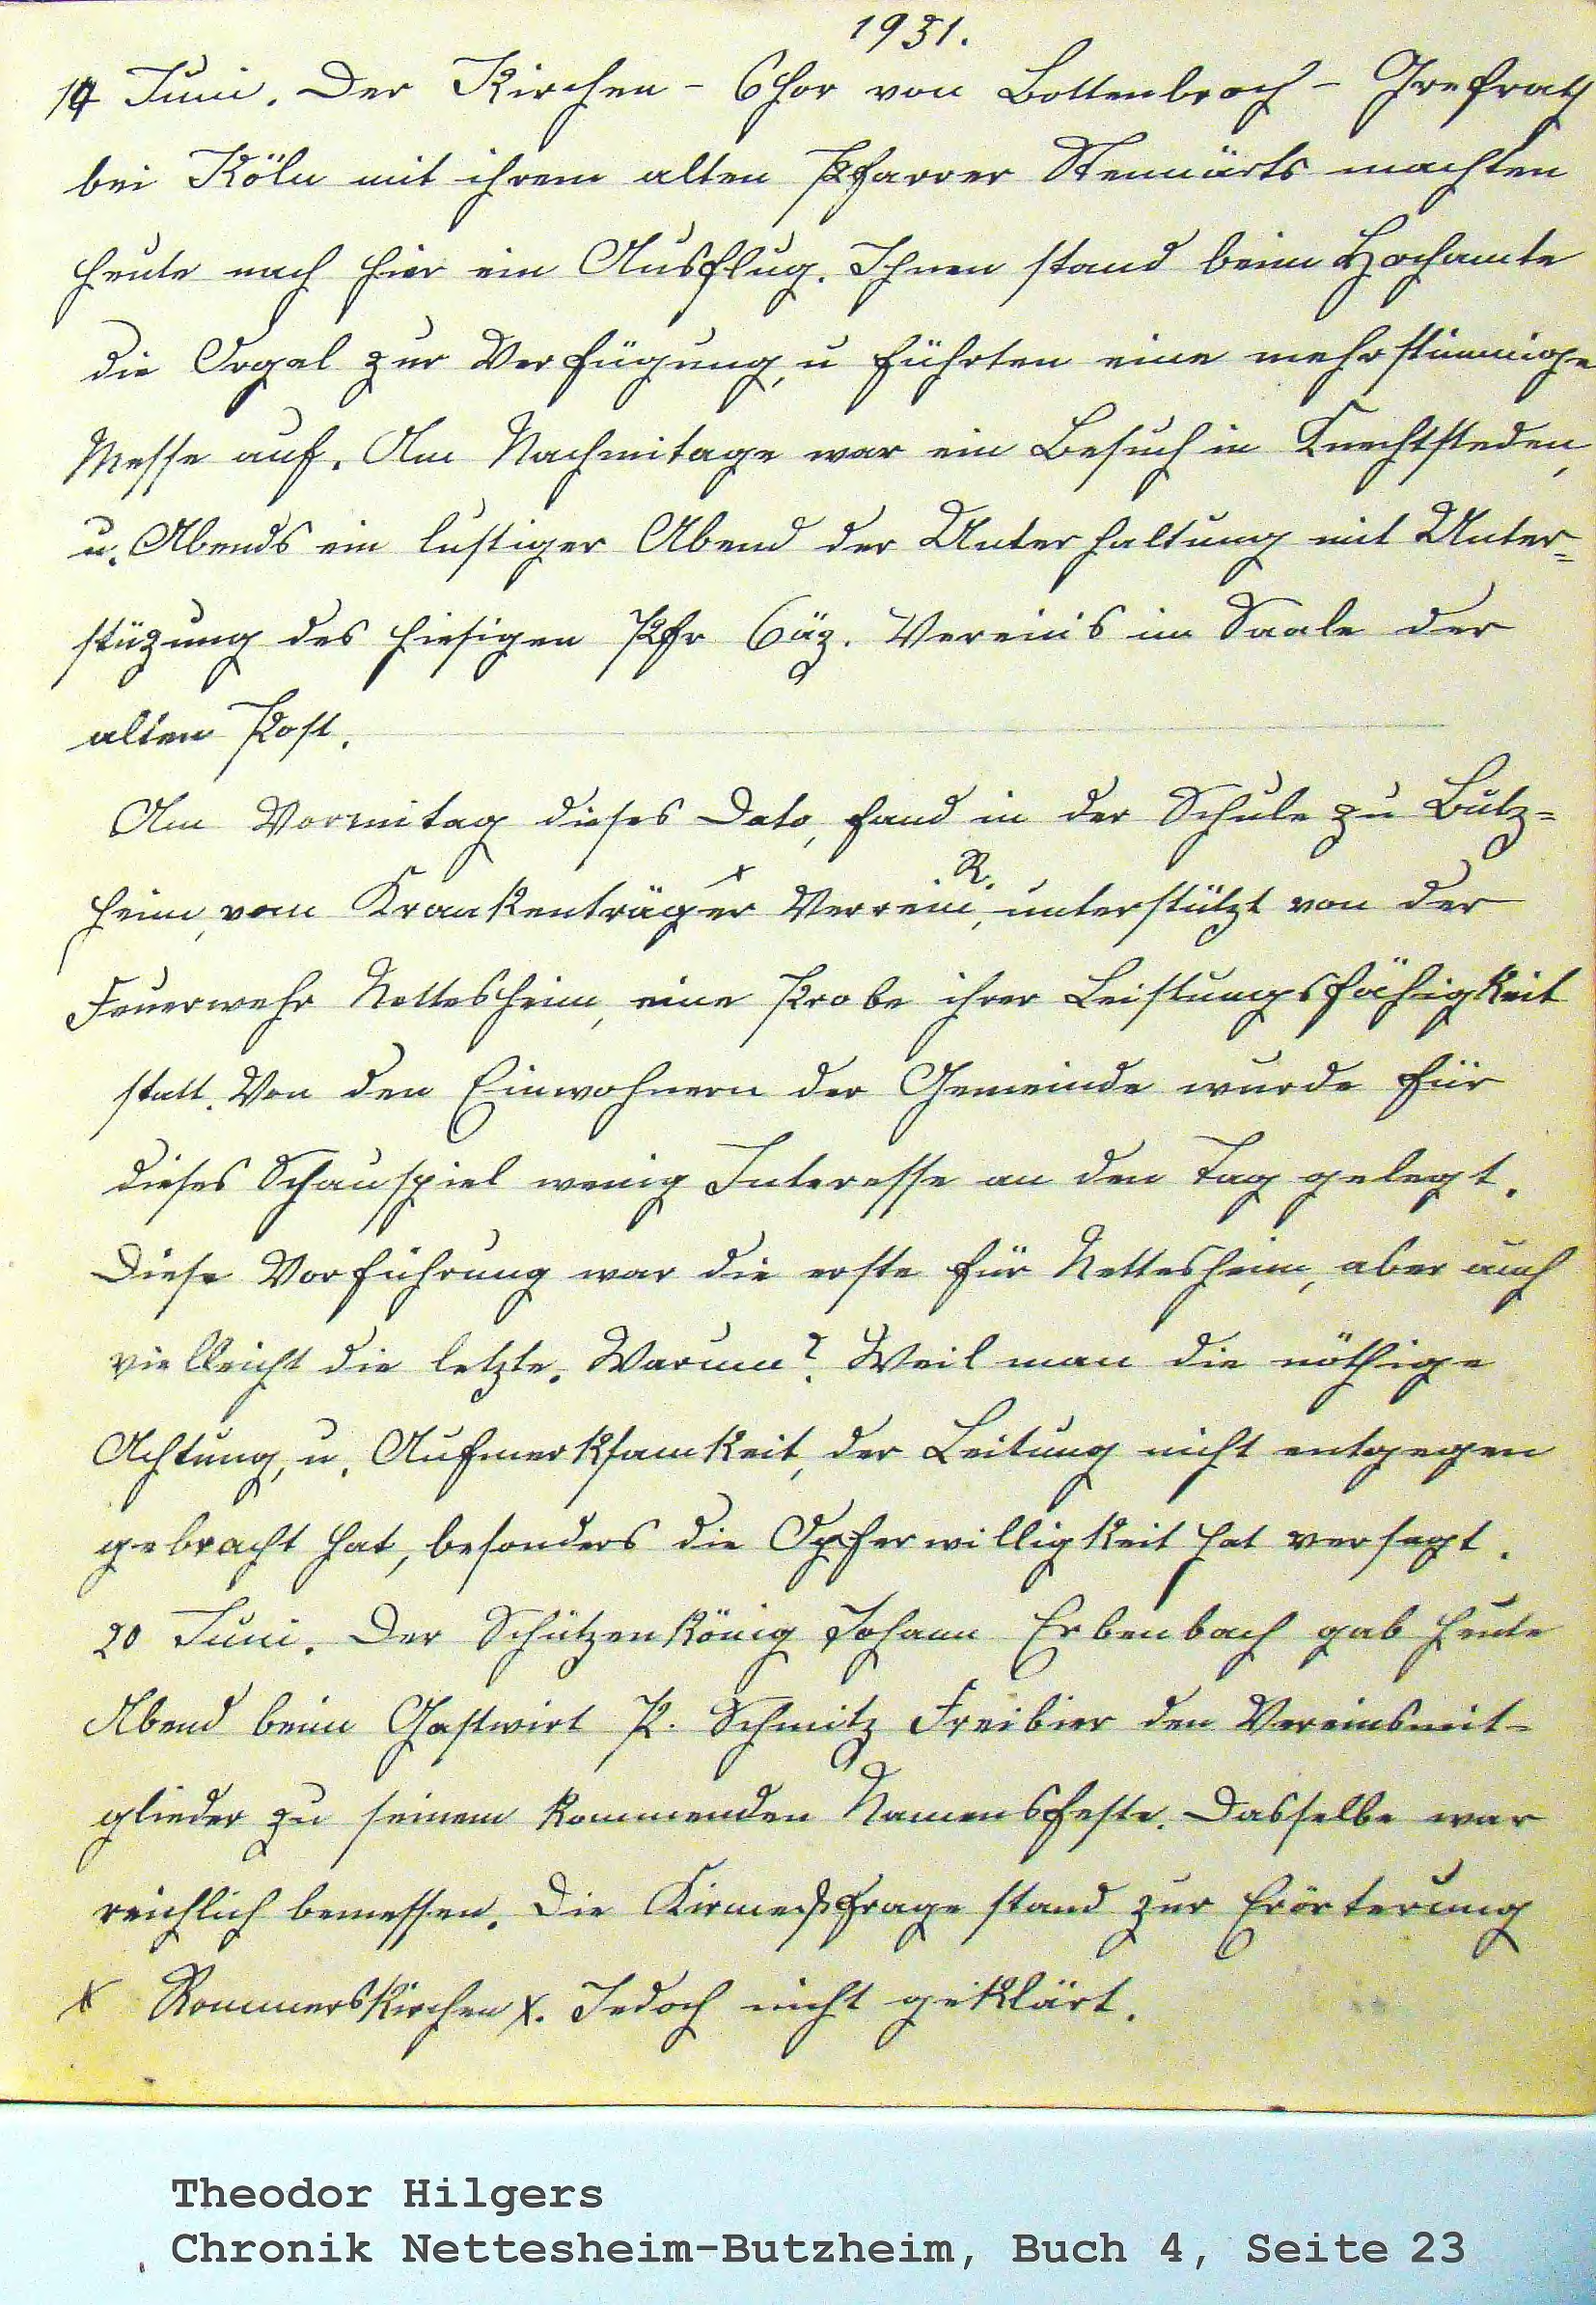 1931.
14 Juni. Der Kirchen - Chor von Bottenbroch - Grefrath
bei Köln mit ihrem alten Pfarrer machten
heute nach hier ein Ausflug. Ihnen stand beim Hochamte
die Orgel zur Verfügung, u führten eine mehrstimmige
Messe auf. Am Nachmitage war ein Besuch in Knechtsteden,
u. Abends ein lustiger Abend der Unterhaltung mit Unter=
stüzung des hiesigen Pfr Cäz. Vereins im Saale der
alten Post.
Am Vormitag dieses Dato, fand in der Schule zu Butz=
heim, vom Krankenträger x Verrein R., unterstützt von der
Feuerwehr Nettesheim, eine Probe ihrer Leistungsfähigkeit
statt. Von den Einwohnern der Gemeinde wurde für
dieses Schauspiel wenig Interesse an den Tag gelegt.
Diese Vorführung war die erste für Nettesheim, aber auch
vielleicht die letzte. Warum? Weil man die nöthige
Achtung, u. Aufmerksamkeit, der Leitung nicht entgegen
gebracht hat, besonders die Opferwilligkeit hat versagt.
20 Juni. Der Schützenkönig Johann Erbenbach gab heute
Abend beim Gastwirt P. Schmitz Freibier den Vereinsmit-
glieder zu seinem kommenden Namensfeste. Dasselbe war
reichlich bemessen. Die Kirmeßfrage stand zur Erörterung
x Rommerskirchen x. Jedoch nicht geklärt.
Theodor Hilgers
Chronik Nettesheim-Butzheim, Buch 4, Seite 23